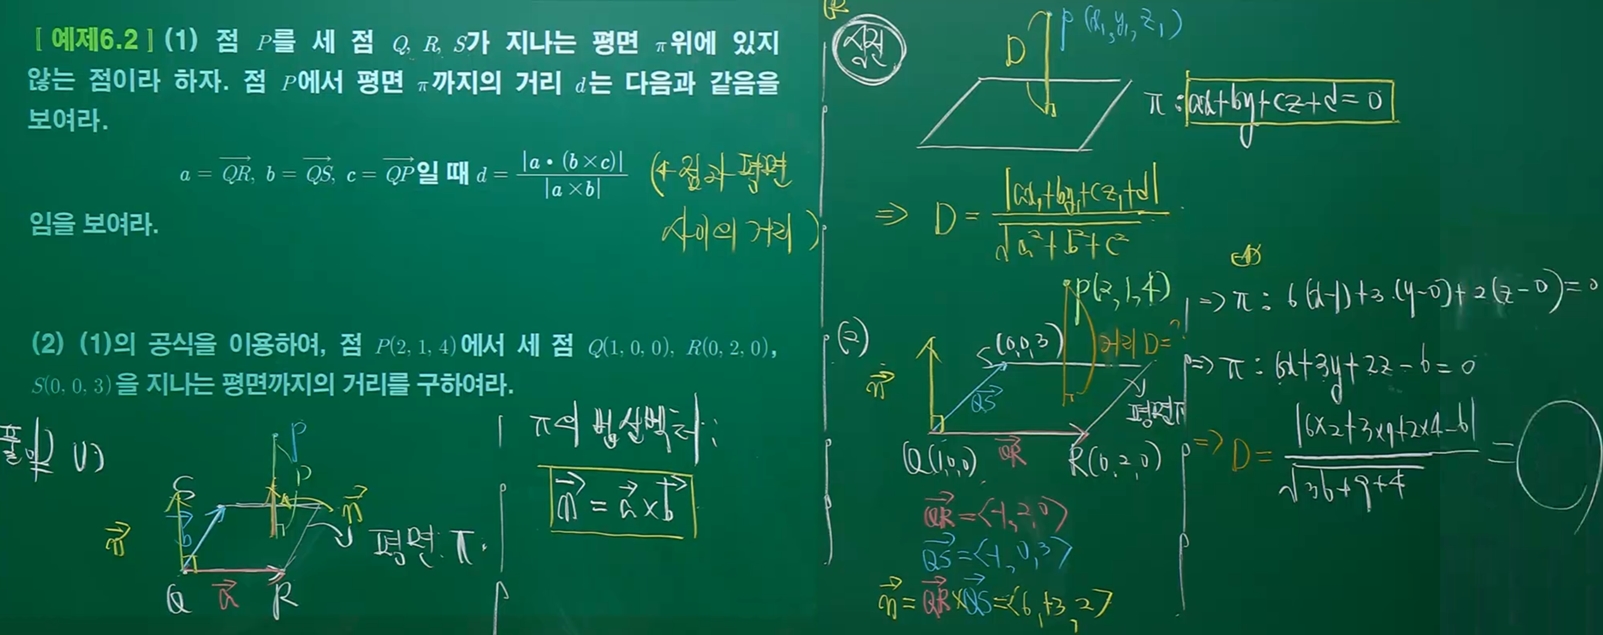 [ 예제6.2 ] (1) 점 P를 세 점 Q, R, S가 지나는 평면 π위에 있지
않는 점이라 하자. 점 P에서 평면 π까지의 거리 d는 다음과 같음을
보여라.
a = \overrightarrow{QR}, b = \overrightarrow{QS}, c = \overrightarrow{QP}일 때 d = \frac{|a • (b × c)|}{|a × b|}
(점과 평면
사이의 거리)
임을 보여라.
(2) (1)의 공식을 이용하여, 점 P(2, 1, 4)에서 세 점 Q(1, 0, 0), R(0, 2, 0),
S(0, 0, 3)을 지나는 평면까지의 거리를 구하여라.
풀이) (1)
P
S
D
\vec{n}
\vec{n}
\vec{b}
평면 π.
Q
\vec{a}
R
π의 법선벡터:
\vec{n} = \vec{a} × \vec{b}
사실
D
P(x₁, y₁, z₁)
π : ax+by+cz+d=0
⇒ D = \frac{|ax₁+by₁+cz₁+d|}{\sqrt{a²+b²+c²}}
(2)
P(2, 1, 4)
S(0,0,3)
거리 D=?
\vec{n}
\overrightarrow{QS}
평면π
Q(1,0,0)
\overrightarrow{QR}
R(0,2,0)
\overrightarrow{QR}=<-1,2,0>
\overrightarrow{QS}=<-1,0,3>
\vec{n}=\overrightarrow{QR}×\overrightarrow{QS}=<6,+3,2>
⇒ π : 6(x-1)+3·(y-0)+2(z-0)=0
⇒ π : 6x+3y+2z-6=0
⇒ D = \frac{|6×2+3×1+2×4-6|}{\sqrt{36+9+4}} =